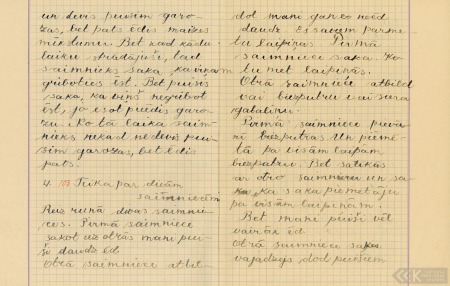 un devis puišim garo-
zas, bet pats ēdis maizes
mīkstumu. Bet kad kādu
laiku strādājuši, tad
saimnieks saka, ka viņam
griboties ēst. Bet puisis
saka, ka viņš negribot
ēst, jo esot paēdis garo-
zu. No tā laika saim-
nieks nekad nedevis pui-
šim garozas, bet ēdis
pats.
4. Pasaka par divām
saimniecēm
Reiz runā divas saimnie-
ces. Pirmā saimniece
sakot uz otrās mani pui-
ši daudz ēd
Otrā saimniece atbil-
dot mani gan ko nēēd
daudz. Es saviem parme-
tu laipiņas. Pirmā
saimniece saka. Ko
tu met laipiņās.
Otrā saimniece atbild
vai biezputru vai siera
gabaliņu.
Pirmā saimniece pieva-
ri biezputras. Un piemē-
tā pa visām laipām
biezputru. Bet satikās
ar otro saimnieci un sa-
ka, ka saka piemetāju
pa visām laipiņām.
Bet mani puiši vēl
vairāk ēd
Otrā saimniece saka
vajadzējs dod puišiem